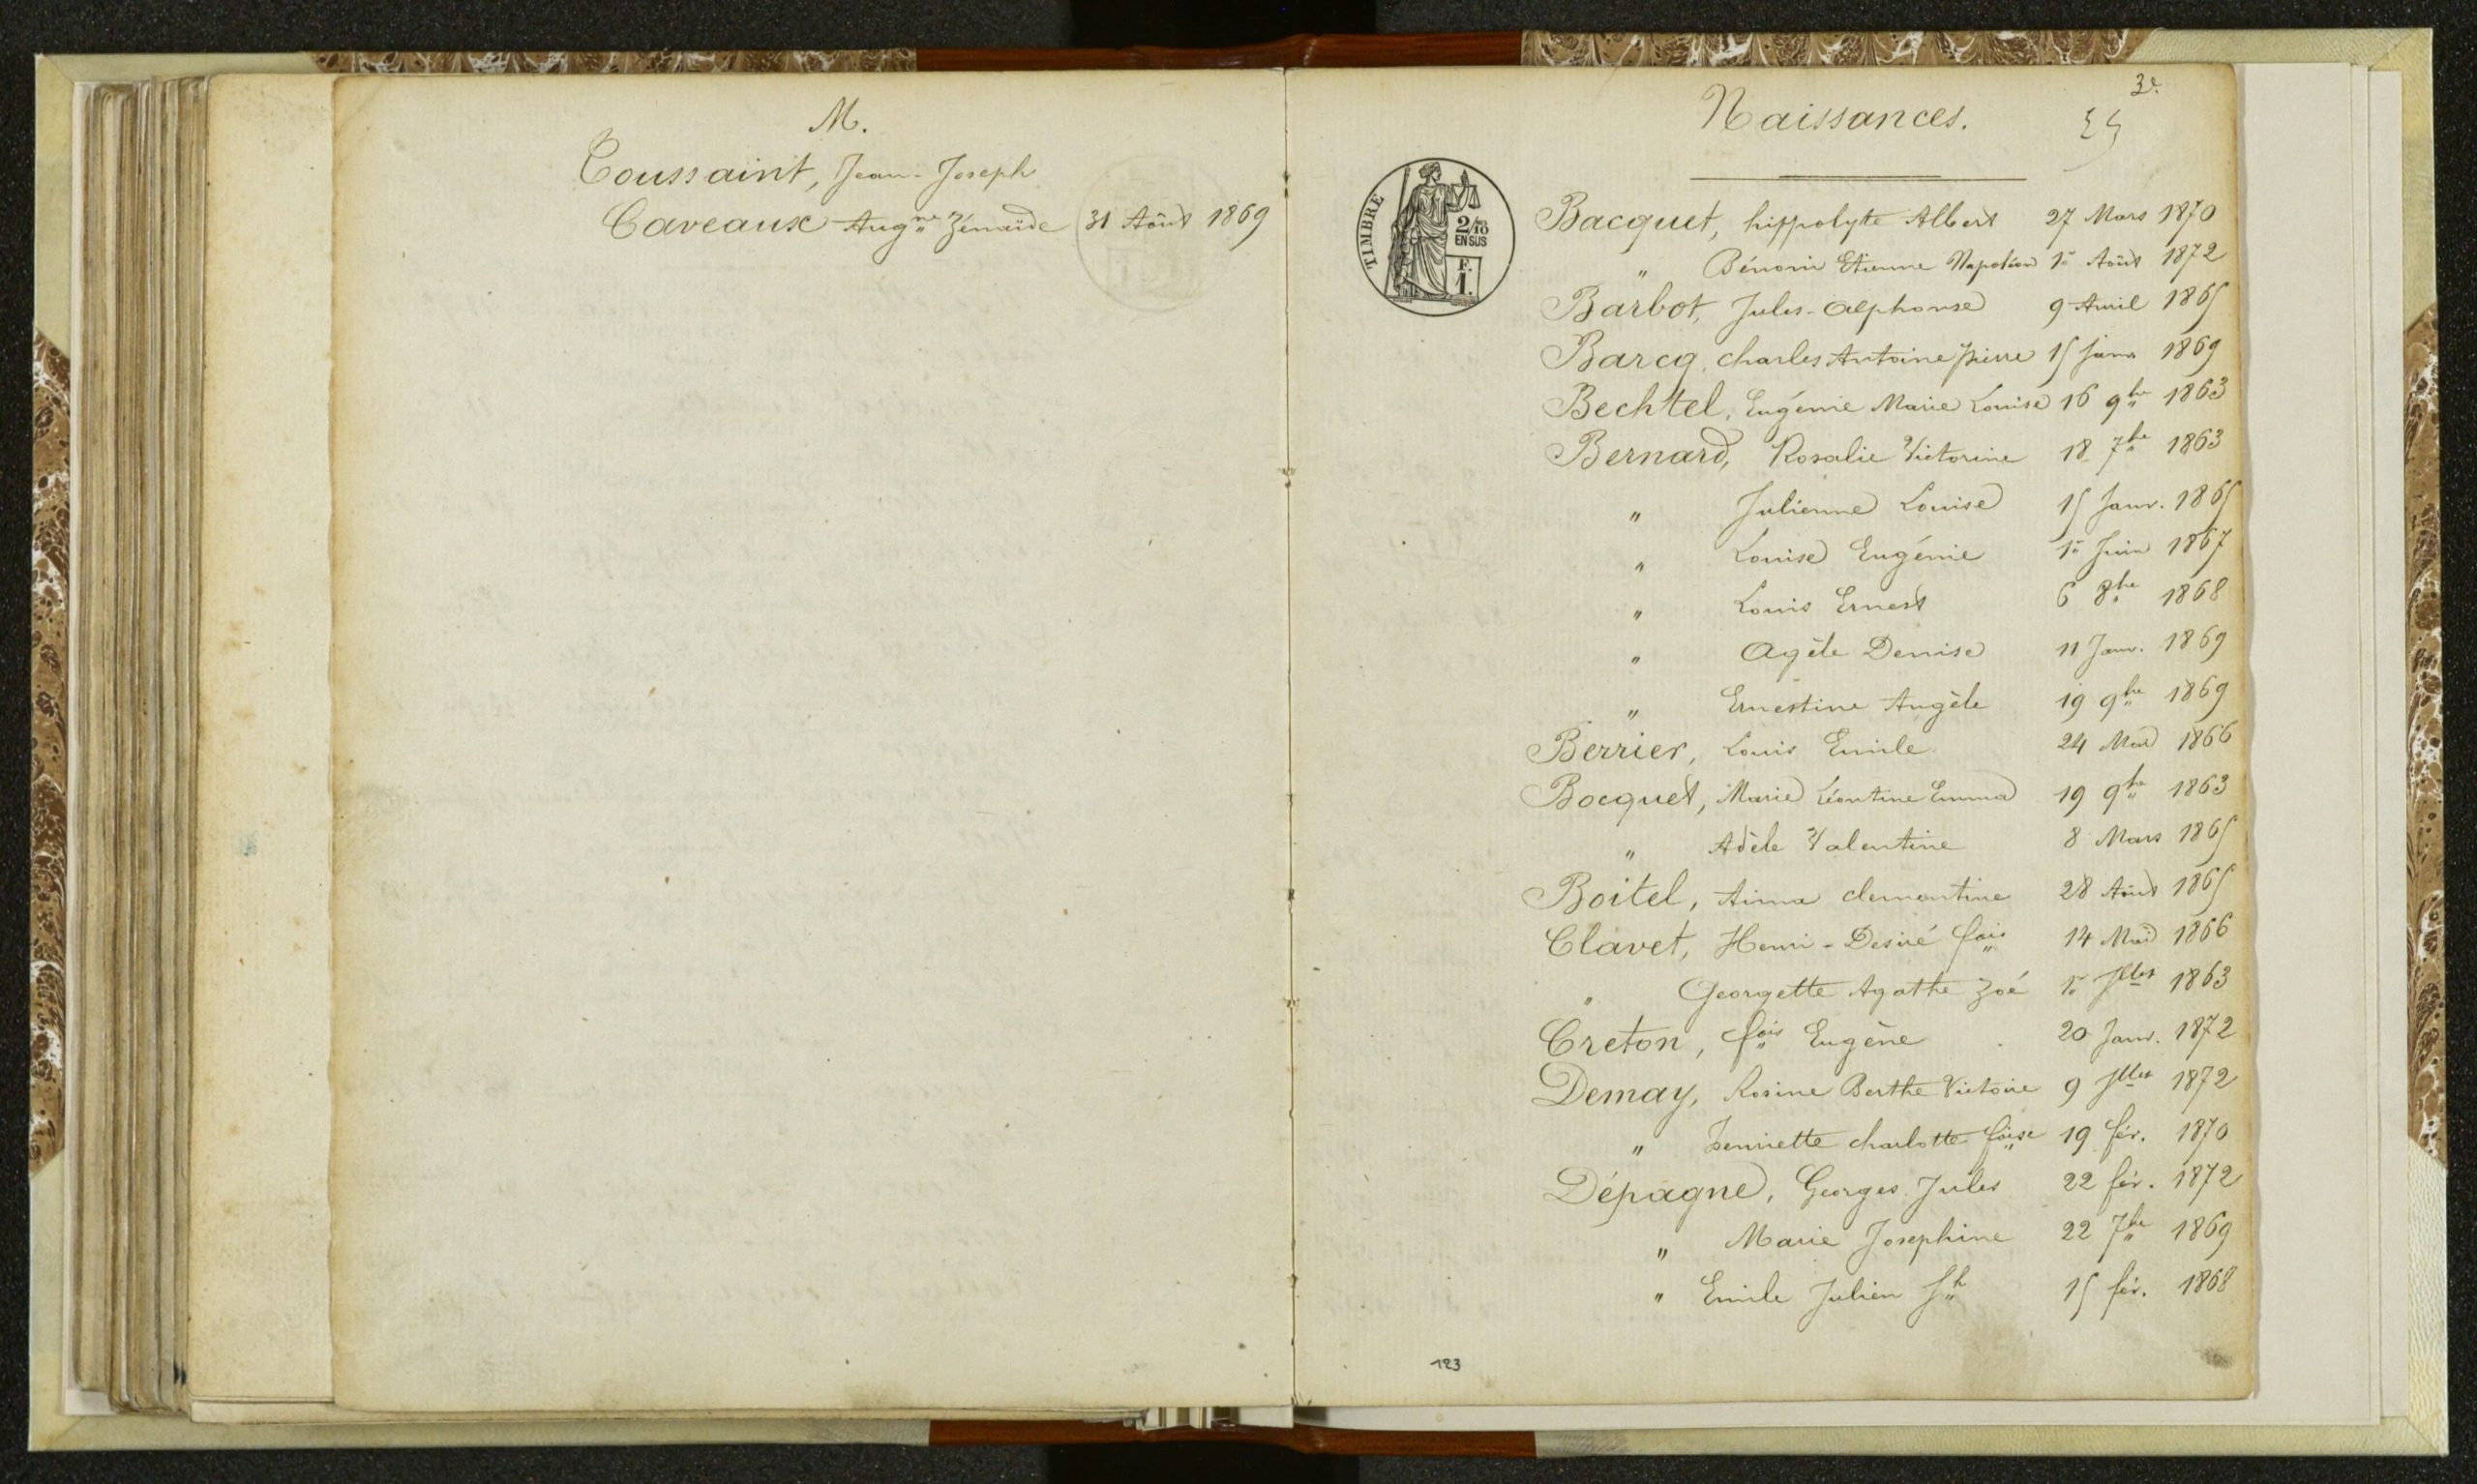 M.
Toussaint, Jean-Joseph
Caveaux Augne Zénaïde 31 Août 1869
3e.
Naissances.
TIMBRE
2/10
EN SUS
F.
1.
Bacquet, hippolyte Albert 27 Mars 1870
" Bénoni Etienne Napoléon 1er Août 1872
Barbot, Jules-alphonse 9 Avril 1865
Barcq, charles Antoine pierre 15 janv 1869
Bechtel, Eugénie Marie Louise 16 9bre 1863
Bernard, Rosalie Victorine 18 7bre 1863
" Julienne Louise 15 Janv. 1865
" Louise Eugénie 1er Juin 1867
" Louis Ernest 6 8bre 1868
" Agèle Denise 11 Janv. 1869
" Ernestine Angèle 19 9bre 1869
Berrier, Louis Emile 24 Mai 1866
Bocquet, Marie Léontine Emma 19 9bre 1863
" Adèle Valentine 8 Mars 1865
Boitel, Aima clementine 28 Août 1865
Clavet, Henri-Desiré fois 14 Mai 1866
" Georgette Agathe Zoé 1er Jllet 1863
Creton, fois Eugène 20 Janv. 1872
Demay, Rosine Berthe Victoire 9 Jllet 1872
" henriette charlotte foise 19 fév. 1870
Dépagne, Georges Jules 22 fév. 1872
" Marie Josephine 22 7bre 1869
" Emile Julien Jh 15 fév. 1868
123